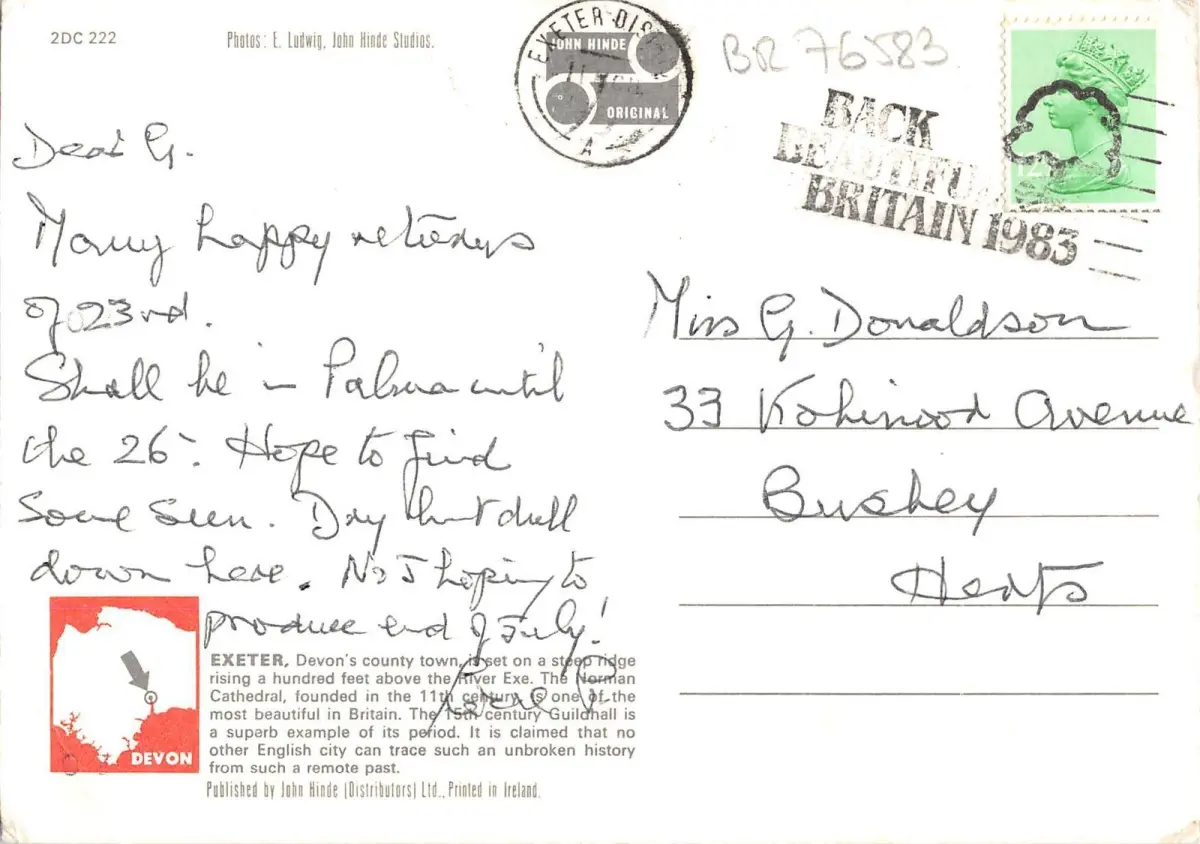 2DC 222
Photos: E. Ludwig, John Hinde Studios.
EXETER DIS
JOHN HINDE
ORIGINAL
A
BR 76583
BACK
BEAUTIFUL
BRITAIN 1983
12
Dear G.
Many happy returns
of 23rd.
Shall be in Palma until
the 26th. Hope to find
some sun. Dry but dull
down here. No I hoping to
produce end of July!
Love P.
Miss G. Donaldson
33 Kohinoor Avenue
Bushey
Herts
DEVON
EXETER, Devon's county town, is set on a steep ridge
rising a hundred feet above the River Exe. The Norman
Cathedral, founded in the 11th century, is one of the
most beautiful in Britain. The 15th century Guildhall is
a superb example of its period. It is claimed that no
other English city can trace such an unbroken history
from such a remote past.
Published by John Hinde (Distributors) Ltd., Printed in Ireland.